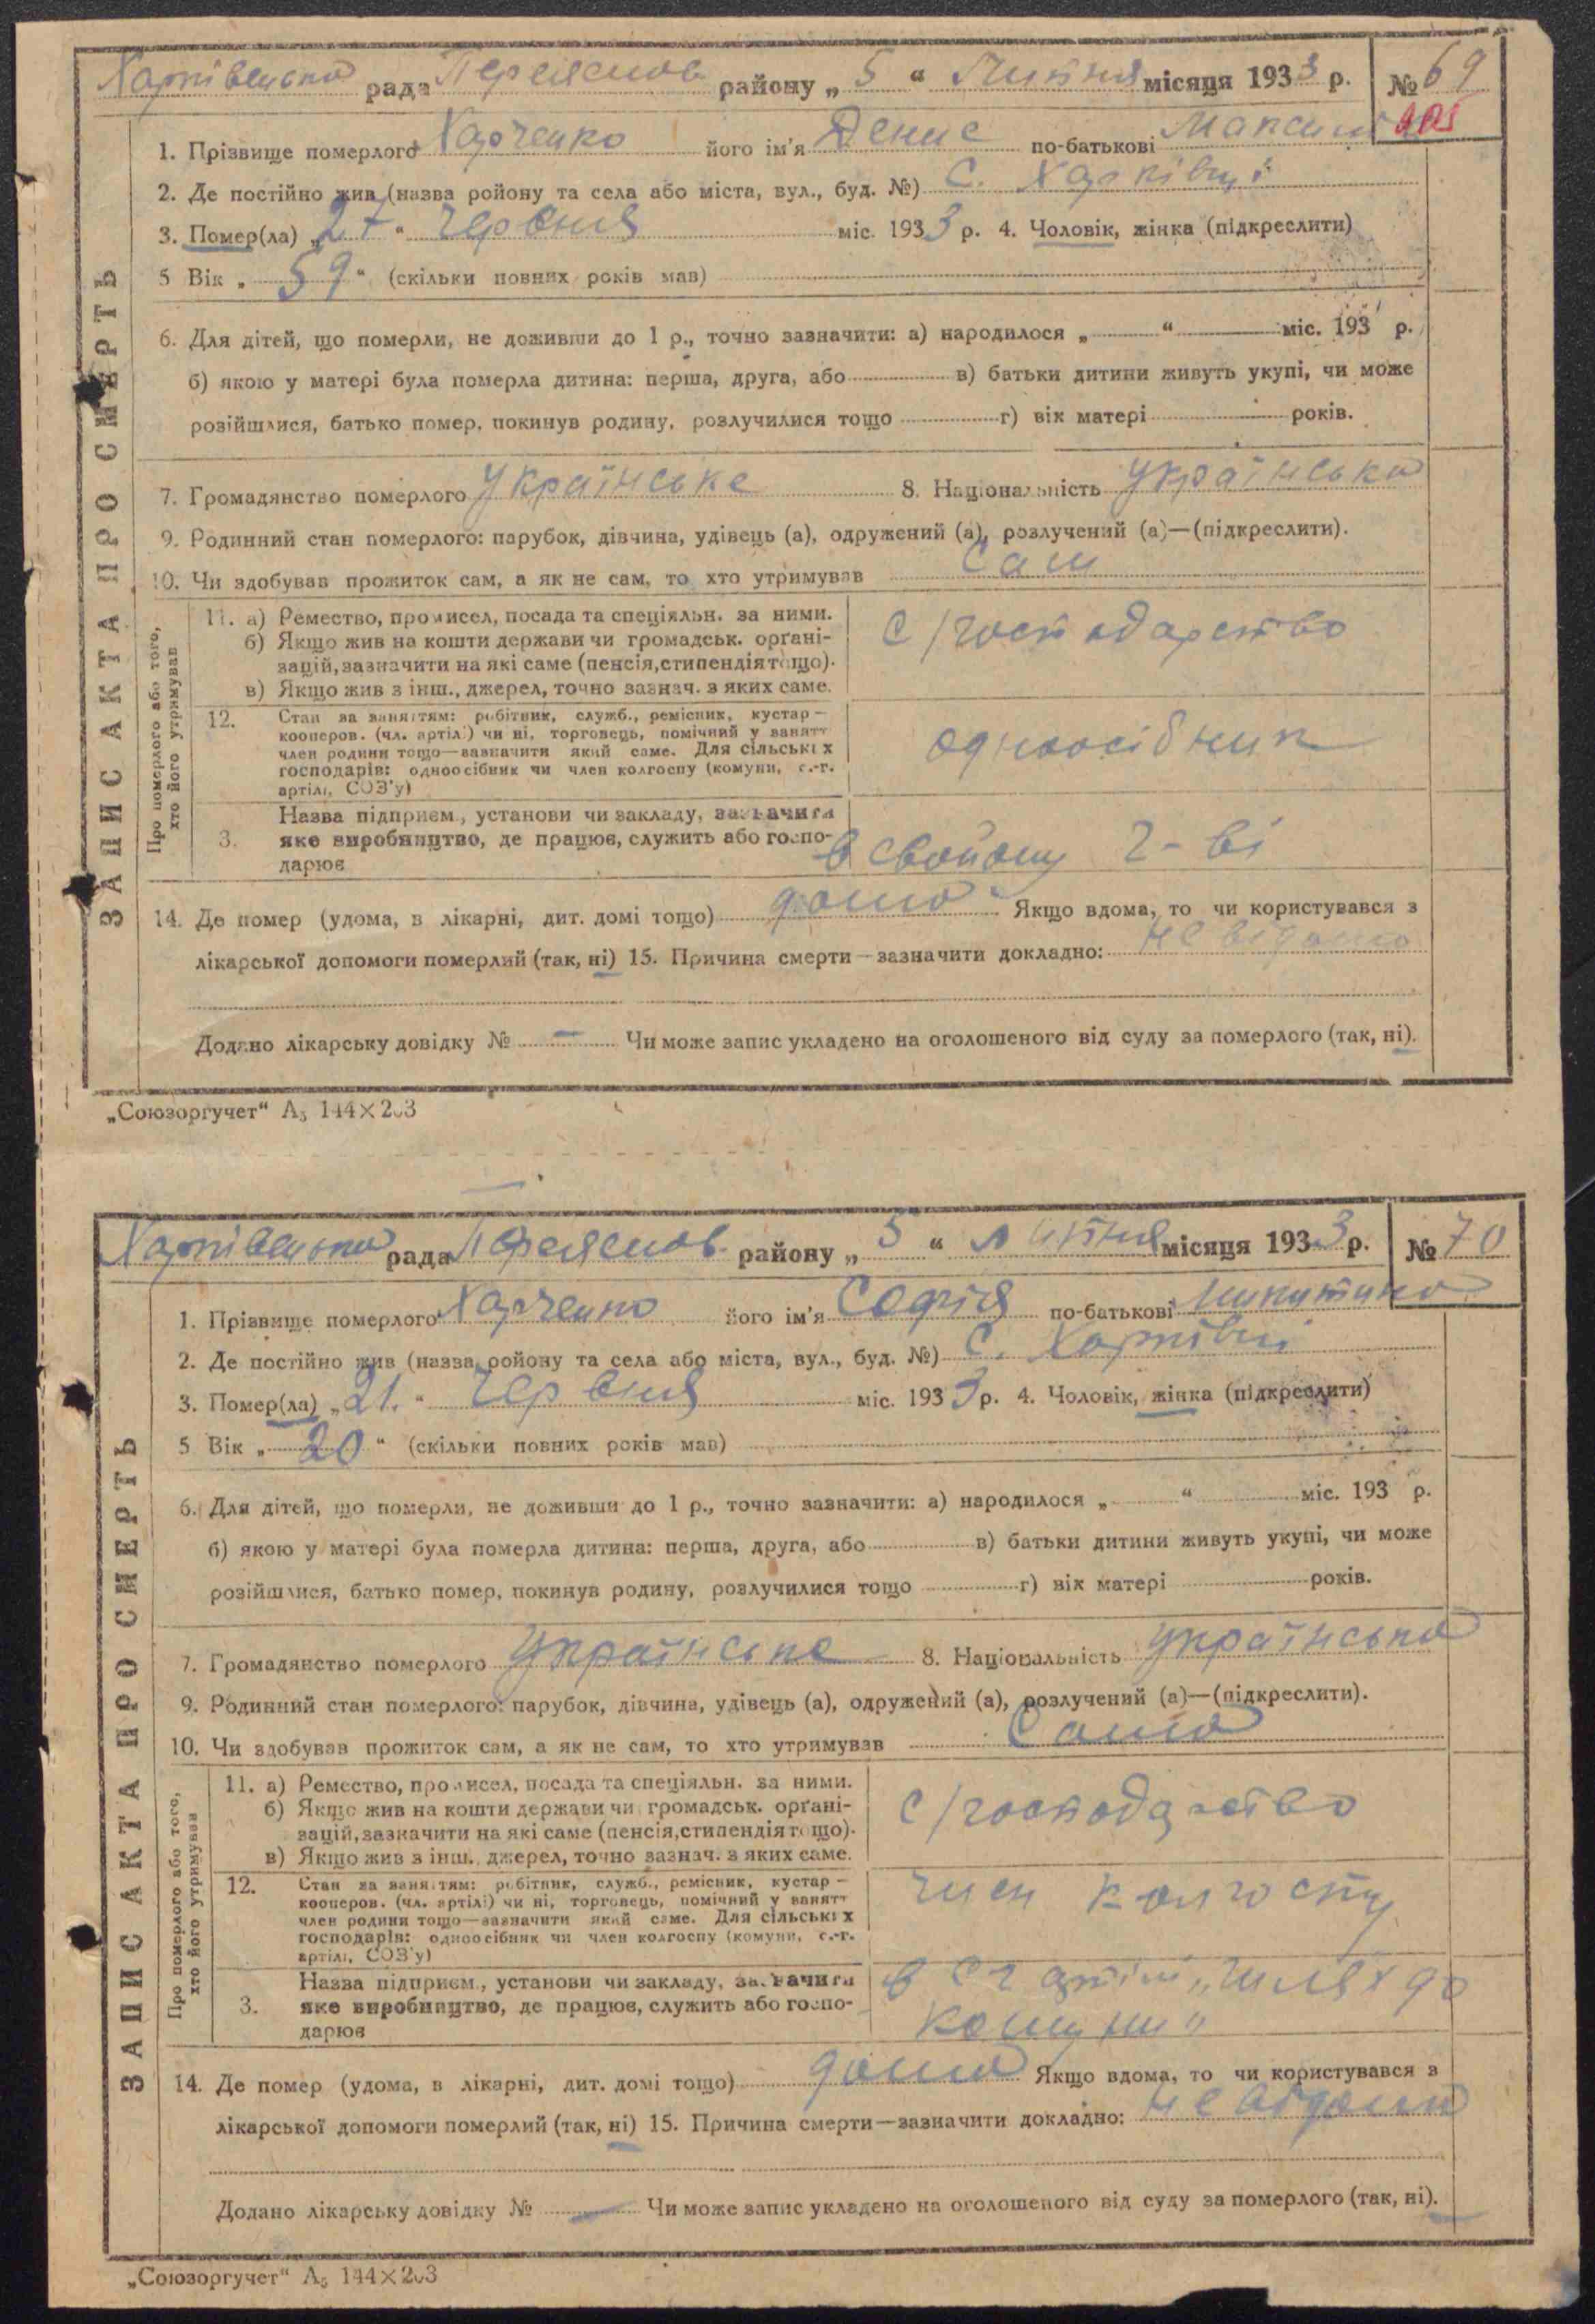 Харківецька рада Переяслов району „ 5 “ Липня місяця 1933 р. № 69
205
1. Прізвище померлого Харченко його ім'я Денис по-батькові
2. Де постійно жив (назва ройону та села або міста, вул., буд. №) с. Харківці
3. Помер(ла) „ 27 “ червня міс. 1933 р. 4. Чоловік, жінка (підкреслити)
5 Вік „ 59 “ (скільки повних років мав)
6. Для дітей, що померли, не доживши до 1 р., точно зазначити: а) народилося „ “ міс. 193 р.
б) якою у матері була померла дитина: перша, друга, або в) батьки дитини живуть укупі, чи може
розійшлися, батько помер, покинув родину, розлучилися тощо г) вік матері років.
7. Громадянство померлого Українське 8. Національність Українська
9. Родинний стан померлого: парубок, дівчина, удівець (а), одружений (а), розлучений (а)—(підкреслити).
10. Чи здобував прожиток сам, а як не сам, то хто утримував сам
ЗАПИС АКТА ПРО СМЕРТЬ
Про померлого або того, хто його утримував
11. а) Ремество, промисел, посада та спеціяльн. за ними.
б) Якщо жив на кошти держави чи громадськ. орґані-
зацій, зазначити на які саме (пенсія, стипендія тощо).
в) Якщо жив з інш., джерел, точно зазнач. з яких саме.
с/господарство
12. Стан за заняттям: робітник, служб., ремісник, кустар —
кооперов. (чл. артілі) чи ні, торговець, помічний у занятт
член родини тощо—зазначити який саме. Для сільських
господарів: одноосібник чи член колгоспу (комуни, с.-г.
артілі, СОЗ'у)
одноосібник
3. Назва підприєм., установи чи закладу, зазначити
яке виробництво, де працює, служить або госпо-
дарює
в свойому г-ві
14. Де помер (удома, в лікарні, дит. домі тощо) дома Якщо вдома, то чи користувався з
лікарської допомоги померлий (так, ні) 15. Причина смерти—зазначити докладно: не відомо
Додано лікарську довідку № — Чи може запис укладено на оголошеного від суду за померлого (так, ні).
„Союзоргучет“ А5 144×203
Харківецька рада Переяслов. району „ 5 “ липня місяця 1933 р. № 70
1. Прізвище померлого Харченко його ім'я Софія по-батькові Микитина
2. Де постійно жив (назва ройону та села або міста, вул., буд. №) с. Харківці
3. Помер(ла) „ 21. “ червня міс. 1933 р. 4. Чоловік, жінка (підкреслити)
5 Вік „ 20 “ (скільки повних років мав)
6. Для дітей, що померли, не доживши до 1 р., точно зазначити: а) народилося „ “ міс. 193 р.
б) якою у матері була померла дитина: перша, друга, або в) батьки дитини живуть укупі, чи може
розійшлися, батько помер, покинув родину, розлучилися тощо г) вік матері років.
7. Громадянство померлого Українське 8. Національність Українська
9. Родинний стан померлого: парубок, дівчина, удівець (а), одружений (а), розлучений (а)—(підкреслити).
10. Чи здобував прожиток сам, а як не сам, то хто утримував Сама
ЗАПИС АКТА ПРО СМЕРТЬ
Про померлого або того, хто його утримував
11. а) Ремество, промисел, посада та спеціяльн. за ними.
б) Якщо жив на кошти держави чи громадськ. орґані-
зацій, зазначити на які саме (пенсія, стипендія тощо).
в) Якщо жив з інш., джерел, точно зазнач. з яких саме.
с/господарство
12. Стан за заняттям: робітник, служб., ремісник, кустар —
кооперов. (чл. артілі) чи ні, торговець, помічний у занятт
член родини тощо—зазначити який саме. Для сільських
господарів: одноосібник чи член колгоспу (комуни, с.-г.
артілі, СОЗ'у)
член колгоспу
3. Назва підприєм., установи чи закладу, зазначити
яке виробництво, де працює, служить або госпо-
дарює
в с г артілі „Шлях до
комуни“
14. Де помер (удома, в лікарні, дит. домі тощо) дома Якщо вдома, то чи користувався з
лікарської допомоги померлий (так, ні) 15. Причина смерти—зазначити докладно: не відомо
Додано лікарську довідку № — Чи може запис укладено на оголошеного від суду за померлого (так, ні).
„Союзоргучет“ А5 144×203